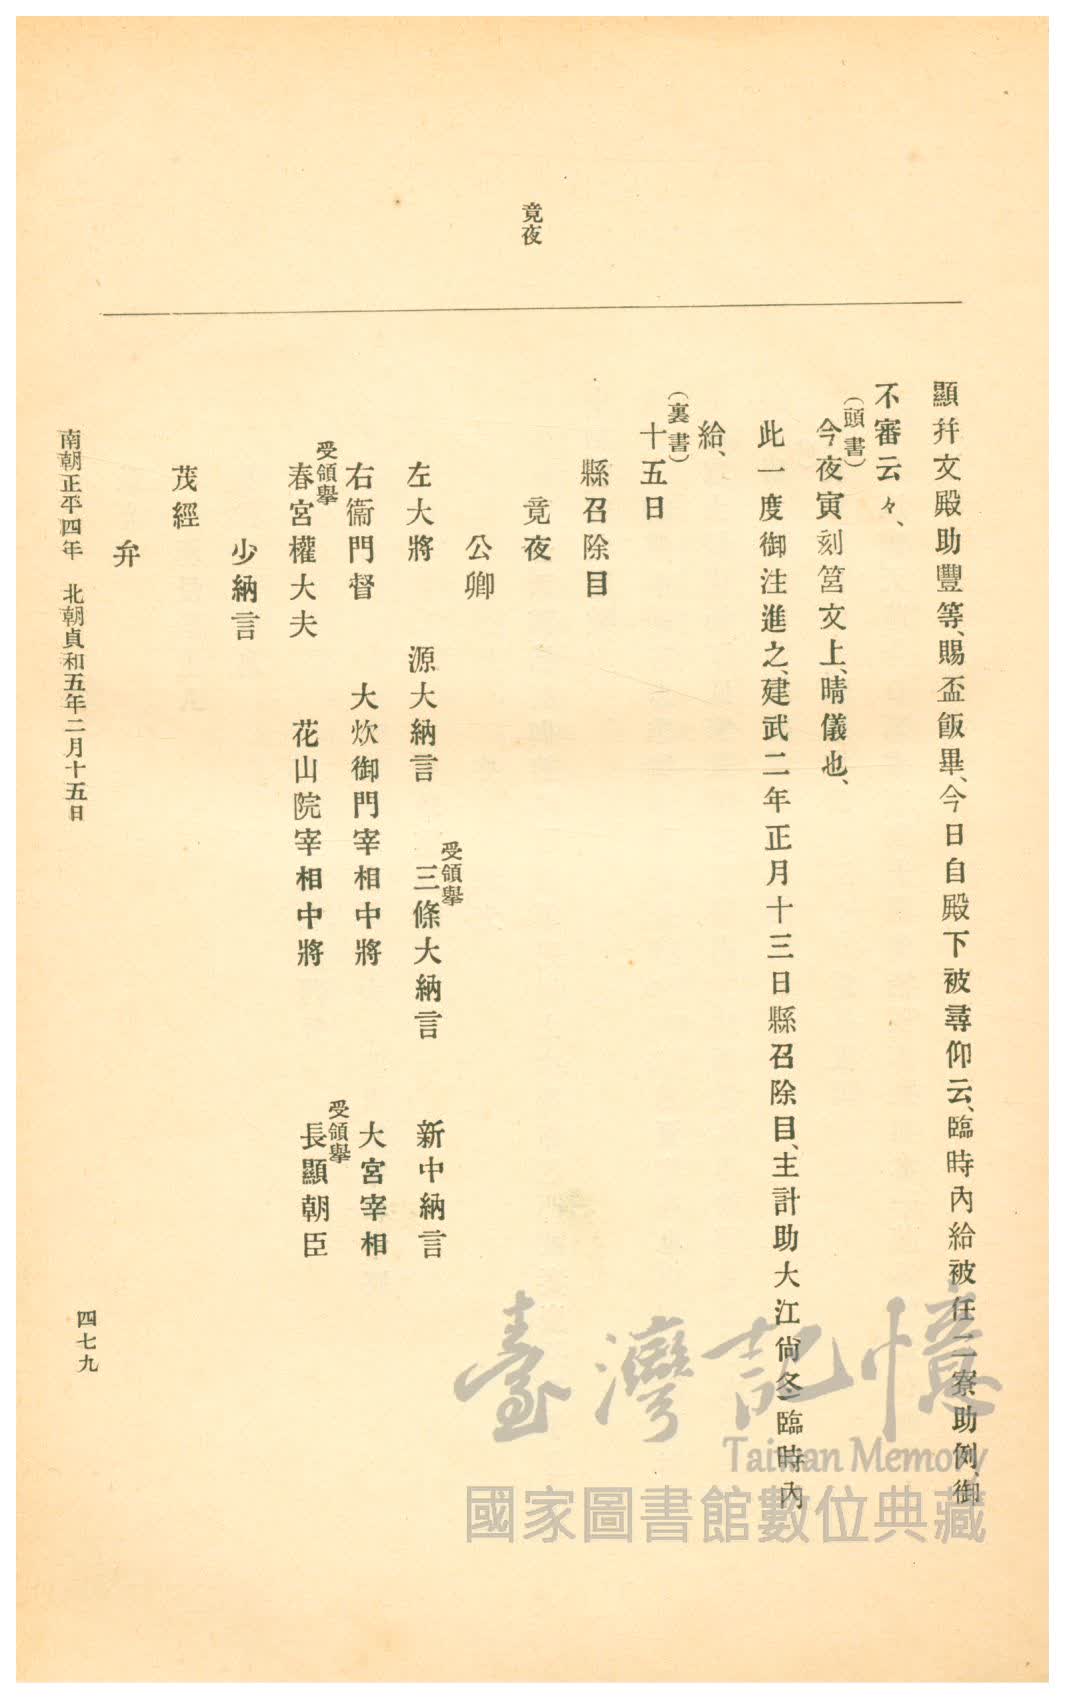 竟夜
顯幷文殿助豐等、賜盃飯畢、今日自殿下被尋仰云、臨時內給被任二寮助例、御
不審云々、
(頭書)
今夜寅刻筥文上、晴儀也、
此一度御注進之、建武二年正月十三日縣召除目、主計助大江尙冬臨時內
給、
(裏書)
十五日
縣召除目
竟夜
公卿
左大將 源大納言 三條大納言 新中納言
受領擧
右衞門督 大炊御門宰相中將 大宮宰相
受領擧 受領擧
春宮權大夫 花山院宰相中將 長顯朝臣
少納言
茂經
弁
南朝正平四年 北朝貞和五年二月十五日
四七九
臺灣記憶
Taiwan Memory
國家圖書館數位典藏